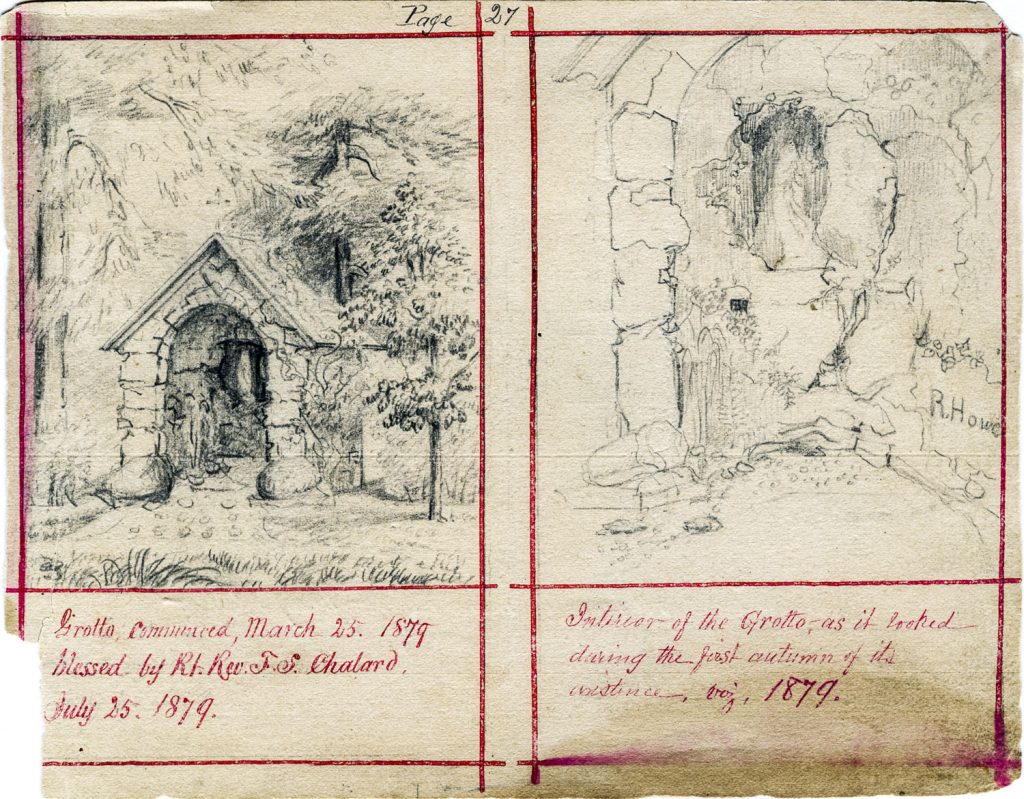 Page 27
Grotto, Commenced, March 25. 1879
blessed by Rt. Rev. F. S. Chalard.
July 25. 1879.
R. Howe
Interior of the Grotto, as it looked
during the first autumn of its
existence, viz, 1879.